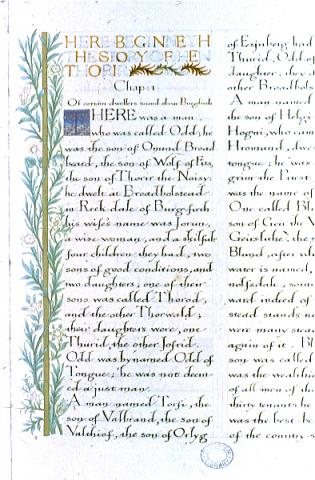 HERE BEGINNETH
THE STORY OF HEN
THORI
Chap. 1
Of certain dwellers round about Burgfirth
THERE was a man
who was called Odd, he
was the son of Onund Broad
beard, the son of Wolf of Fits,
the son of Thorir the Noisy:
he dwelt at Broadbolstead
in Reek dale of Burg-firth
his wife's name was Jorun,
a wise woman, and a skilful
four children they had, two
sons of good conditions, and
two daughters; one of their
sons was called Thorod,
and the other Thorwald;
their daughters were, one
Thurid, the other Jofrid.
Odd was bynamed Odd of
Tongue; he was not deem-
ed a just man.
A man named Torfi, the
son of Valbrand, the son of
Valthiof, the son of Orlyg
of Esjuberg had
Thurid, Odd of
daughter; they d
other Broadbols
A man named
the son of Helgi
Hogni, who cam
Hromund, dwe
tongue; he was
grim the Priest
was the name of
One called Bl
son of Geir the W
Geirslithe; the s
Blund, after wh
water is named,
nolfsdale, som
water: indeed of
stead stands n
were many stea
again of it. Bl
son was called
was the wealthie
of all men of the
thirty tenants he
was the best be
of the country s